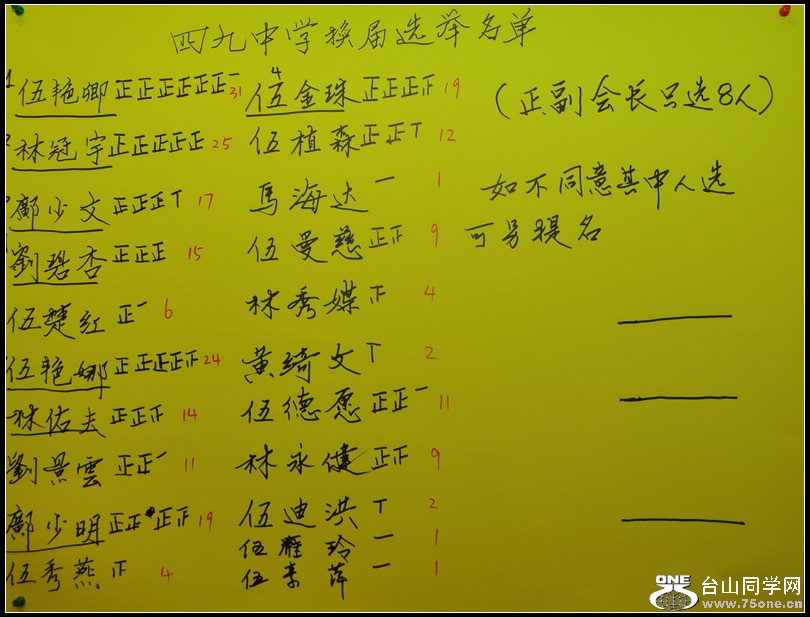 四九中学换届选举名单
1 伍艳卿 正正正正正正一 31
2 林冠宇 正正正正正 25
鄺少文 正正正丅 17
劉碧杏 正正正 15
伍楚红 正一 6
伍艳娜 正正正正正 24
林佑夫 正正正 14
劉景雲 正正一 11
鄺少明 正正正正 19
伍秀燕 正 4
4
伍金珠 正正正正 19
伍植森 正正丅 12
馬海达 一 1
伍曼慈 正正 9
林秀媒 正 4
黄绮文 丅 2
伍德愿 正正一 11
林永健 正正 9
伍迪洪 丅 2
伍雁玲 一 1
伍素萍 一 1
（正副会长只选8人）
如不同意其中人选
可另提名
ONE 台山同学网
www.75one.com.cn